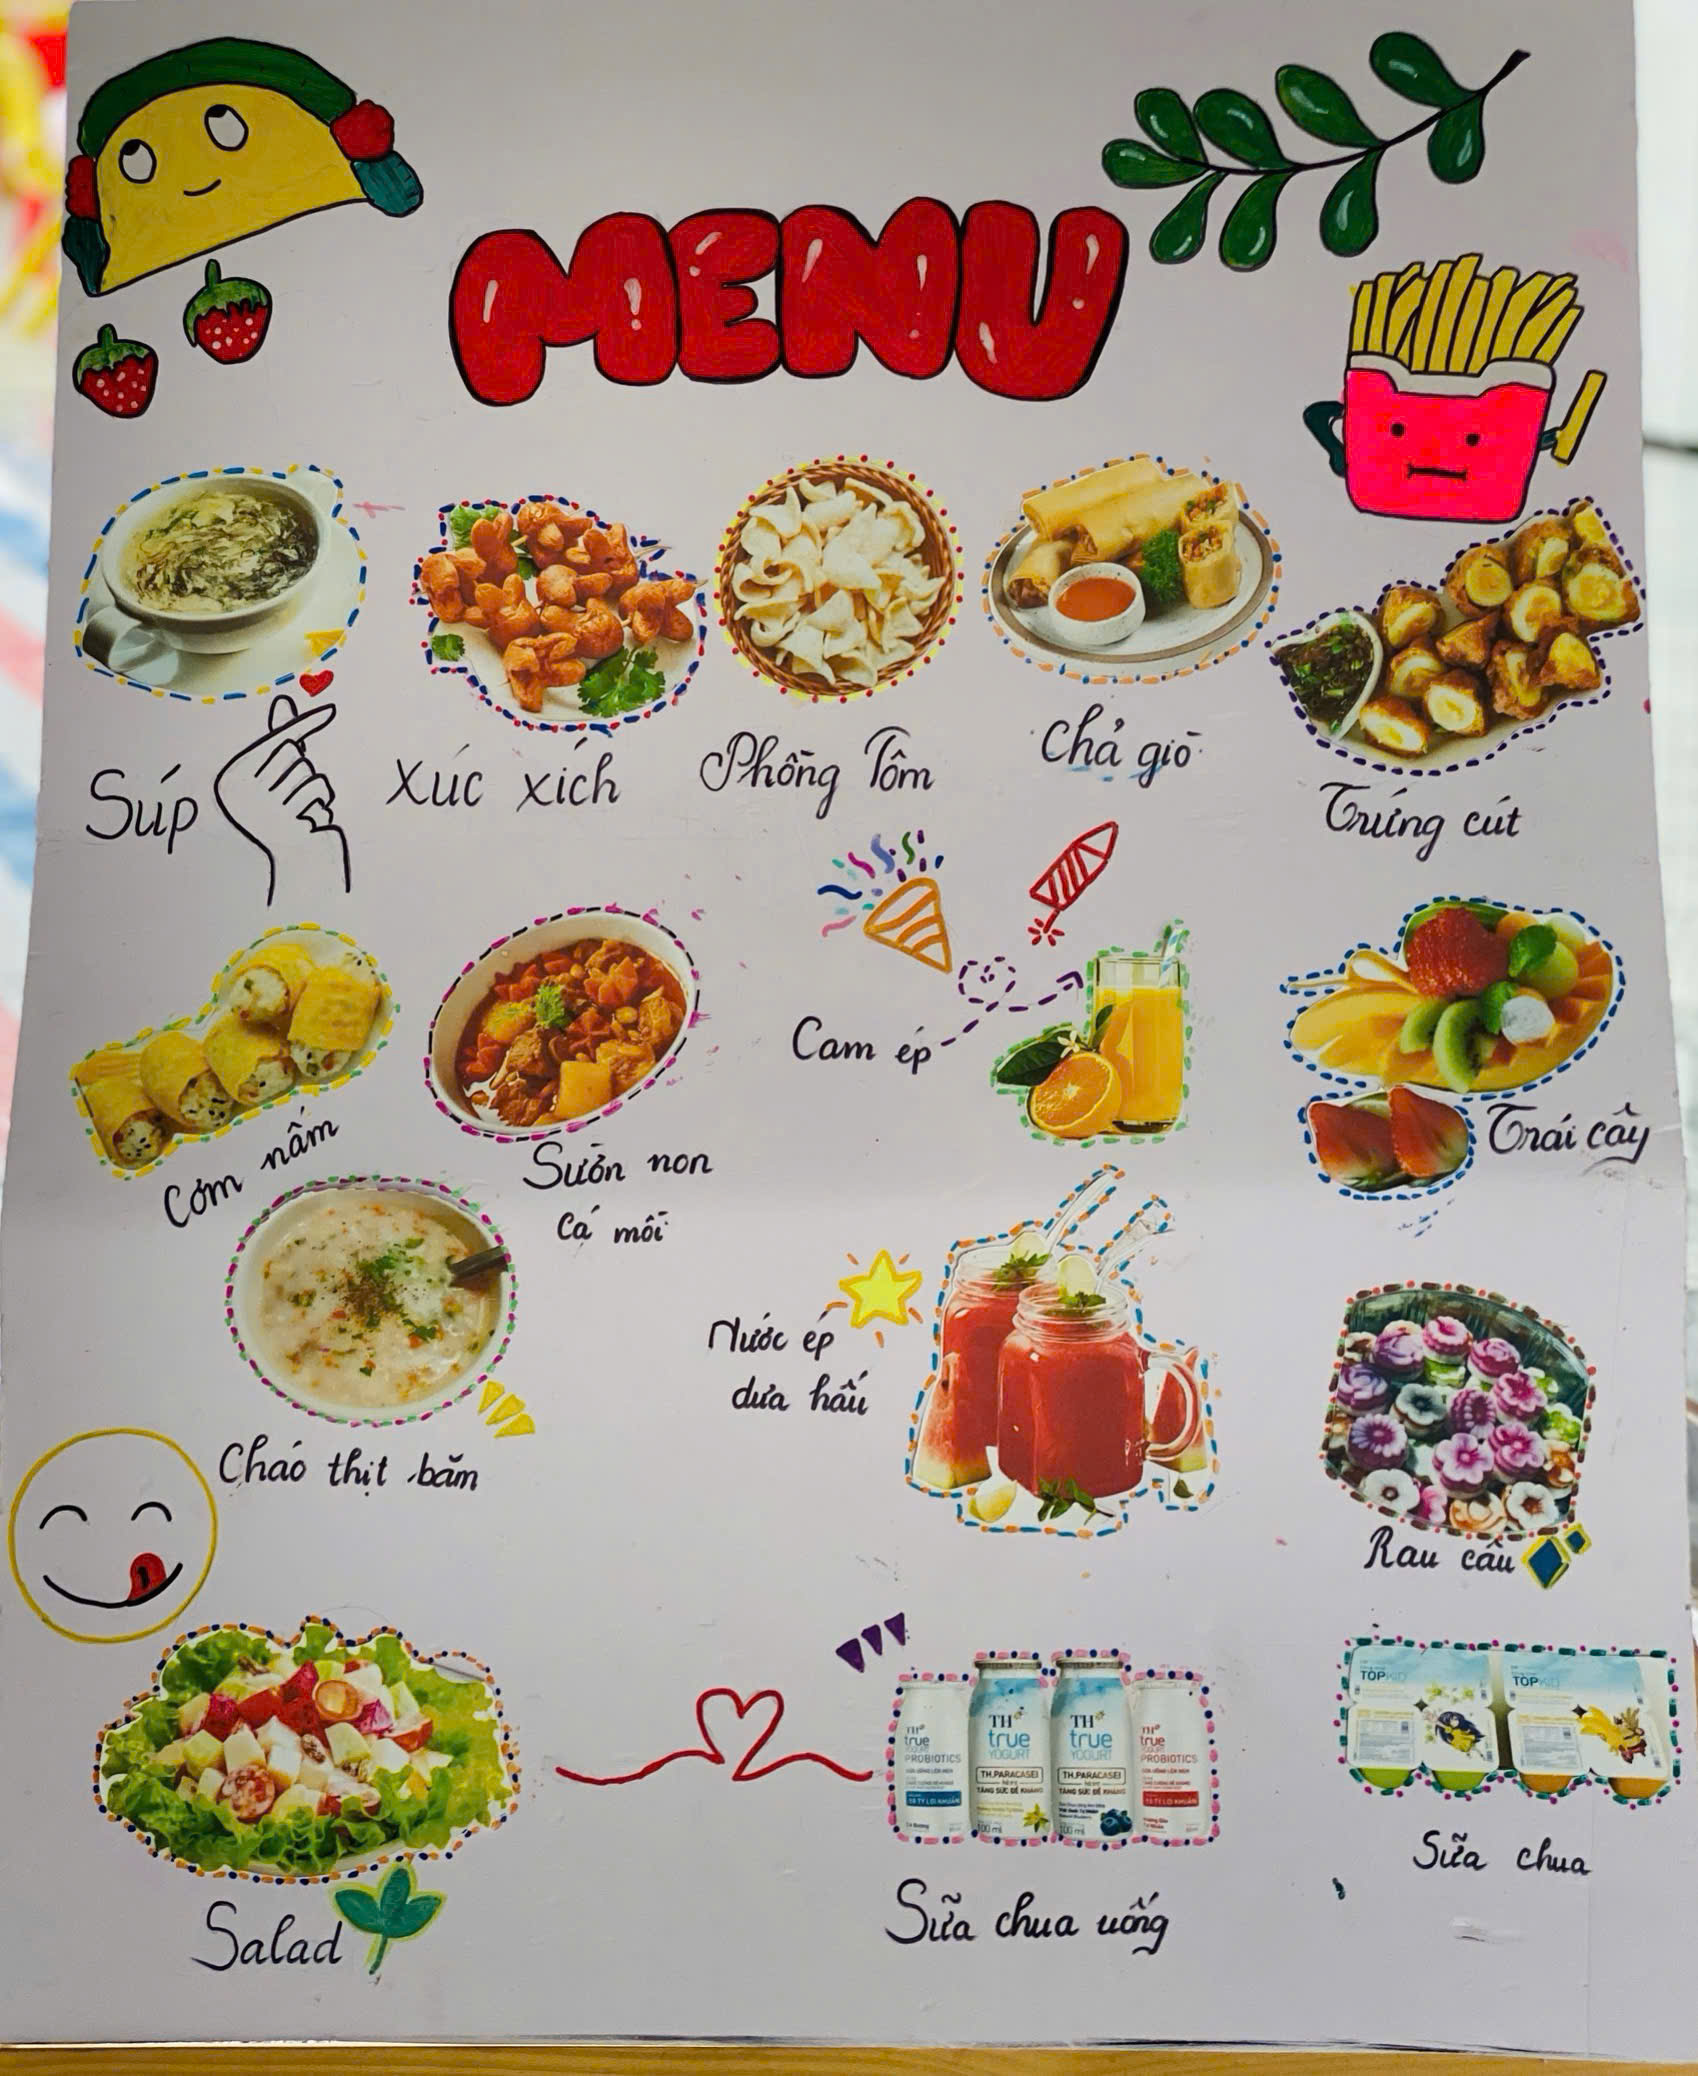 MENU
Súp
Xúc xích
Phồng Tôm
Chả giò
Trứng cút
Cơm nấm
Sườn non
cá mòi
Cam ép
Trái cây
Cháo thịt băm
Nước ép
dưa hấu
Rau câu
Salad
TH
true
YOGURT
PROBIOTICS
TH
true
YOGURT
TH.PARACASEI
TĂNG SỨC ĐỀ KHÁNG
100 ml
TH
true
YOGURT
TH.PARACASEI
TĂNG SỨC ĐỀ KHÁNG
100 ml
TH
true
YOGURT
PROBIOTICS
Sữa chua uống
TOPKID
TOPKID
Sữa chua